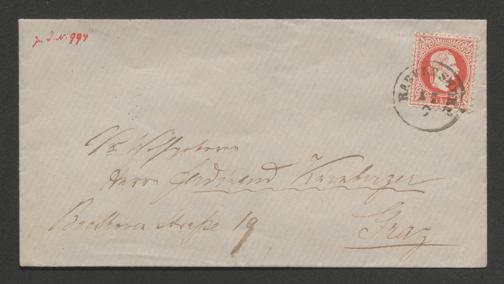 J. N. 994
Sr Hochgeboren
Herrn Ferdinand Kürnberger
Beethoven Straße 19
Graz